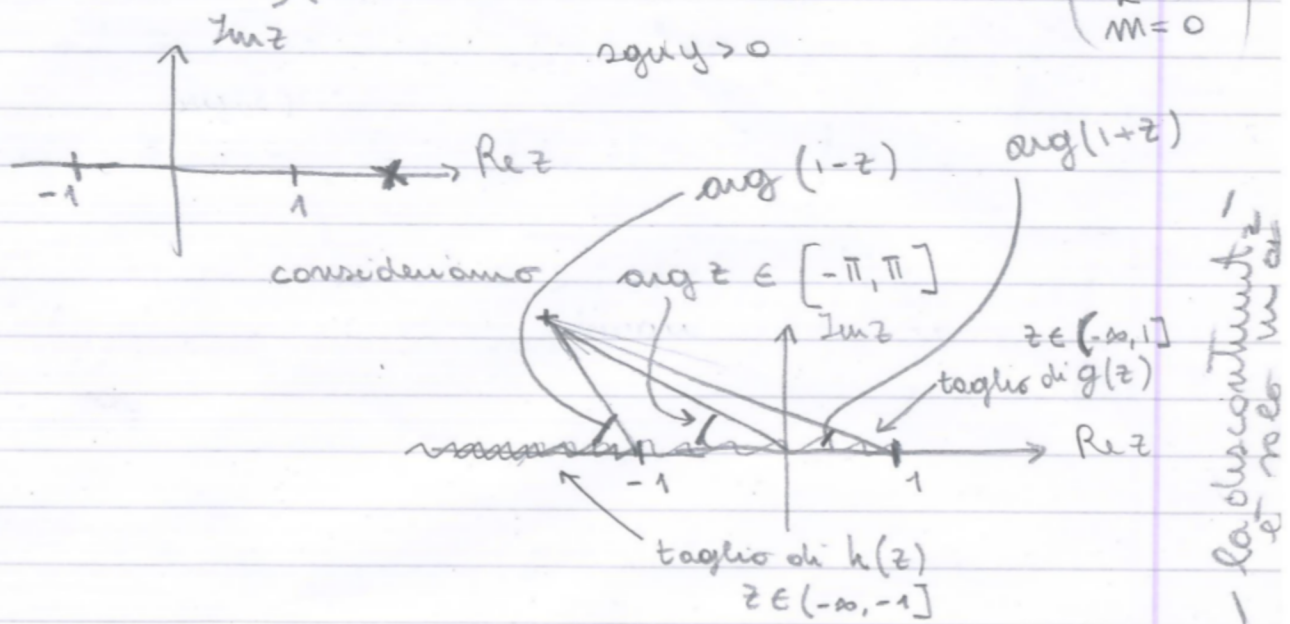 Im z
sgn y > 0
m = 0
Re z
-1
1
arg (1-z)
arg (1+z)
consideriamo arg z ∈ [-π, π]
Im z
z ∈ (-∞, 1]
taglio di g(z)
Re z
-1
1
taglio di h(z)
z ∈ (-∞, -1]
- la discontinuità -
è solo in